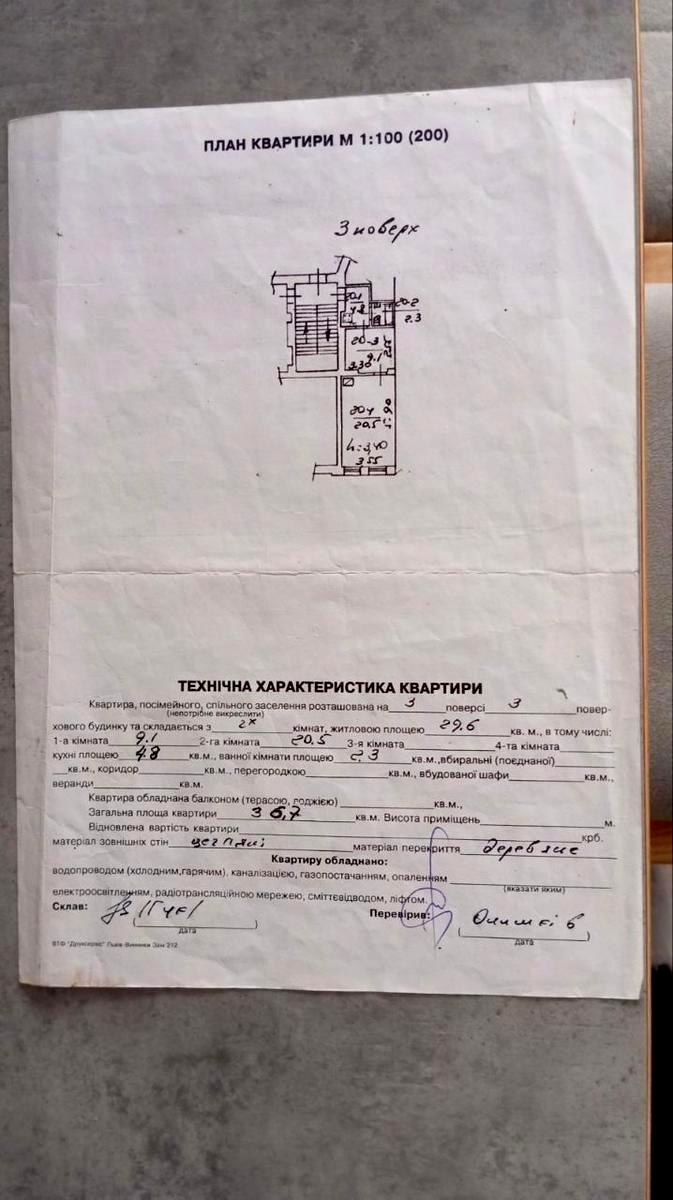 ПЛАН КВАРТИРИ М 1:100 (200)
3 поверх
20-1
4.8
20-2
2.3
20-3
9.1
3.30
20-4
20,5
h=3,40
3.55
ТЕХНІЧНА ХАРАКТЕРИСТИКА КВАРТИРИ
Квартира, посімейного, спільного заселення розташована на 3 поверсі 3 повер-
(непотрібне викреслити)
хового будинку та складається з 2х кімнат, житловою площею 29.6 кв. м., в тому числі:
1-а кімната 9.1 2-га кімната 20.5 3-я кімната 4-та кімната
кухні площею 4.8 кв.м., ванної кімнати площею 2.3 кв.м.,вбиральні (поєднаної)
кв.м., коридор кв.м., перегородкою кв.м., вбудованої шафи кв.м.,
веранди кв.м.
Квартира обладнана балконом (терасою, лоджією) кв.м.,
Загальна площа квартири 36,7 кв.м. Висота приміщень м.
Відновлена вартість квартири крб.
матеріал зовнішніх стін цегляні матеріал перекриття дерев'яне
Квартиру обладнано:
водопроводом (холодним,гарячим). каналізацією, газопостачанням, опаленням
(вказати яким)
електроосвітленням, радіотрансляційною мережею, сміттєвідводом, ліфтом.
Склав: Перевірив:
дата
дата
ВТФ "Друксервіс" Львів-Винники Зам 212